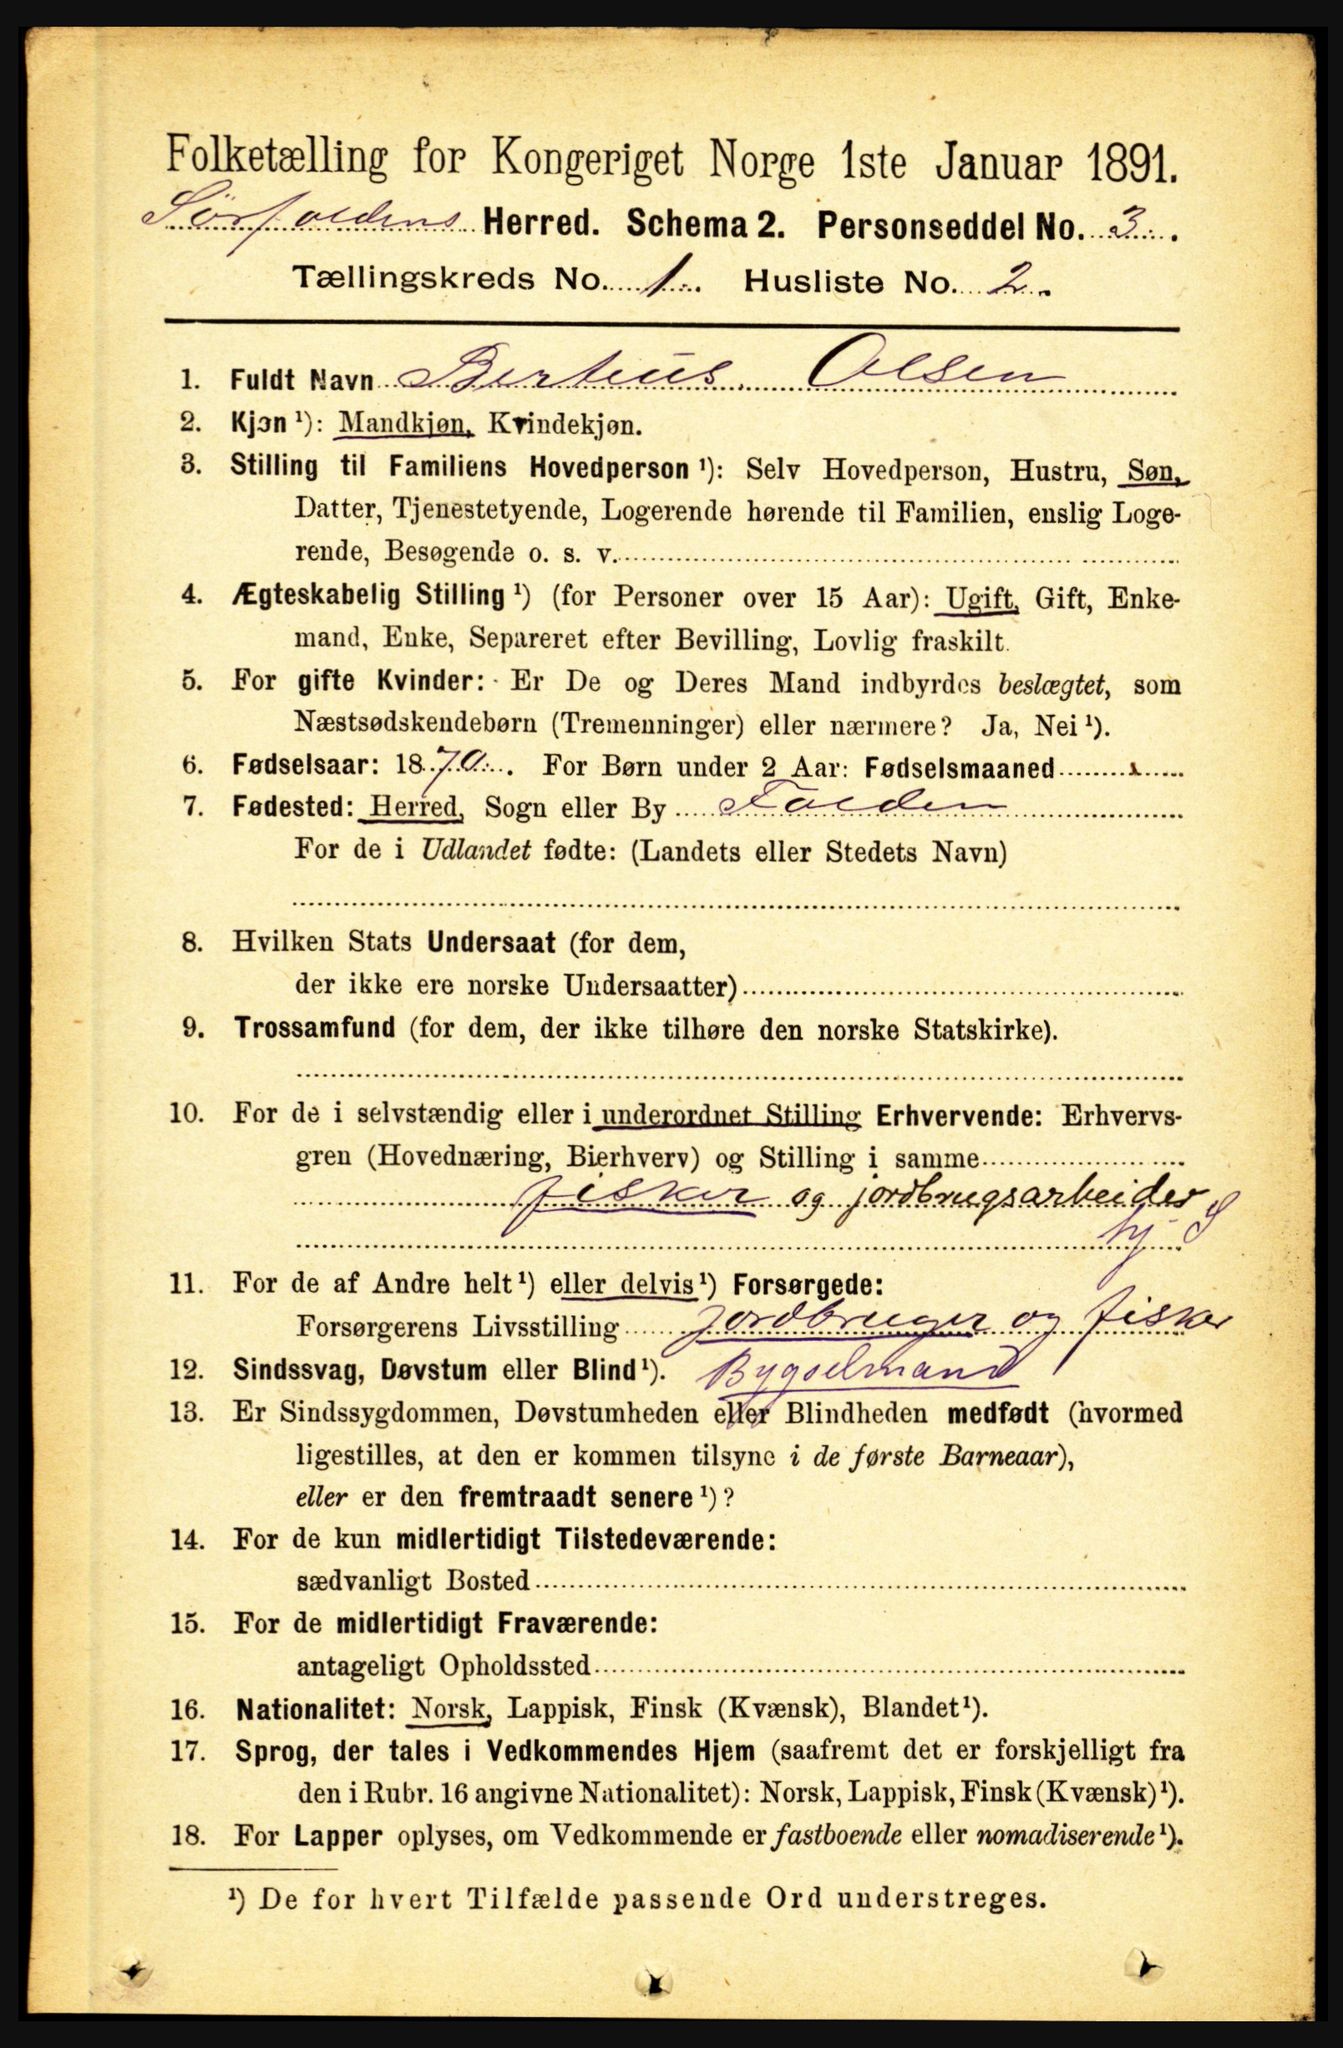 Folketælling for Kongeriget Norge 1ste Januar 1891.
Sørfoldens Herred. Schema 2. Personseddel No. 3.
Tællingskreds No. 1. Husliste No. 2.
1. Fuldt Navn Berteus Olsen
2. Kjøn ¹): Mandkjøn, Kvindekjøn.
3. Stilling til Familiens Hovedperson ¹): Selv Hovedperson, Hustru, Søn,
Datter, Tjenestetyende, Logerende hørende til Familien, enslig Loge-
rende, Besøgende o. s. v.
4. Ægteskabelig Stilling ¹) (for Personer over 15 Aar): Ugift, Gift, Enke-
mand, Enke, Separeret efter Bevilling, Lovlig fraskilt.
5. For gifte Kvinder: Er De og Deres Mand indbyrdes beslægtet, som
Næstsødskendebørn (Tremenninger) eller nærmere? Ja, Nei ¹).
6. Fødselsaar: 1870. For Børn under 2 Aar: Fødselsmaaned
7. Fødested: Herred, Sogn eller By Folden
For de i Udlandet fødte: (Landets eller Stedets Navn)
8. Hvilken Stats Undersaat (for dem,
der ikke ere norske Undersaatter)
9. Trossamfund (for dem, der ikke tilhøre den norske Statskirke).
10. For de i selvstændig eller i underordnet Stilling Erhvervende: Erhvervs-
gren (Hovednæring, Bierhverv) og Stilling i samme
fisker og jordbrugsarbeider
S
11. For de af Andre helt ¹) eller delvis ¹) Forsørgede:
Forsørgerens Livsstilling Jordbruger og fisker
12. Sindssvag, Døvstum eller Blind ¹). Bygselmand
13. Er Sindssygdommen, Døvstumheden eller Blindheden medfødt (hvormed
ligestilles, at den er kommen tilsyne i de første Barneaar),
eller er den fremtraadt senere ¹)?
14. For de kun midlertidigt Tilstedeværende:
sædvanligt Bosted
15. For de midlertidigt Fraværende:
antageligt Opholdssted
16. Nationalitet: Norsk, Lappisk, Finsk (Kvænsk), Blandet ¹).
17. Sprog, der tales i Vedkommendes Hjem (saafremt det er forskjelligt fra
den i Rubr. 16 angivne Nationalitet): Norsk, Lappisk, Finsk (Kvænsk) ¹).
18. For Lapper oplyses, om Vedkommende er fastboende eller nomadiserende ¹).
¹) De for hvert Tilfælde passende Ord understreges.